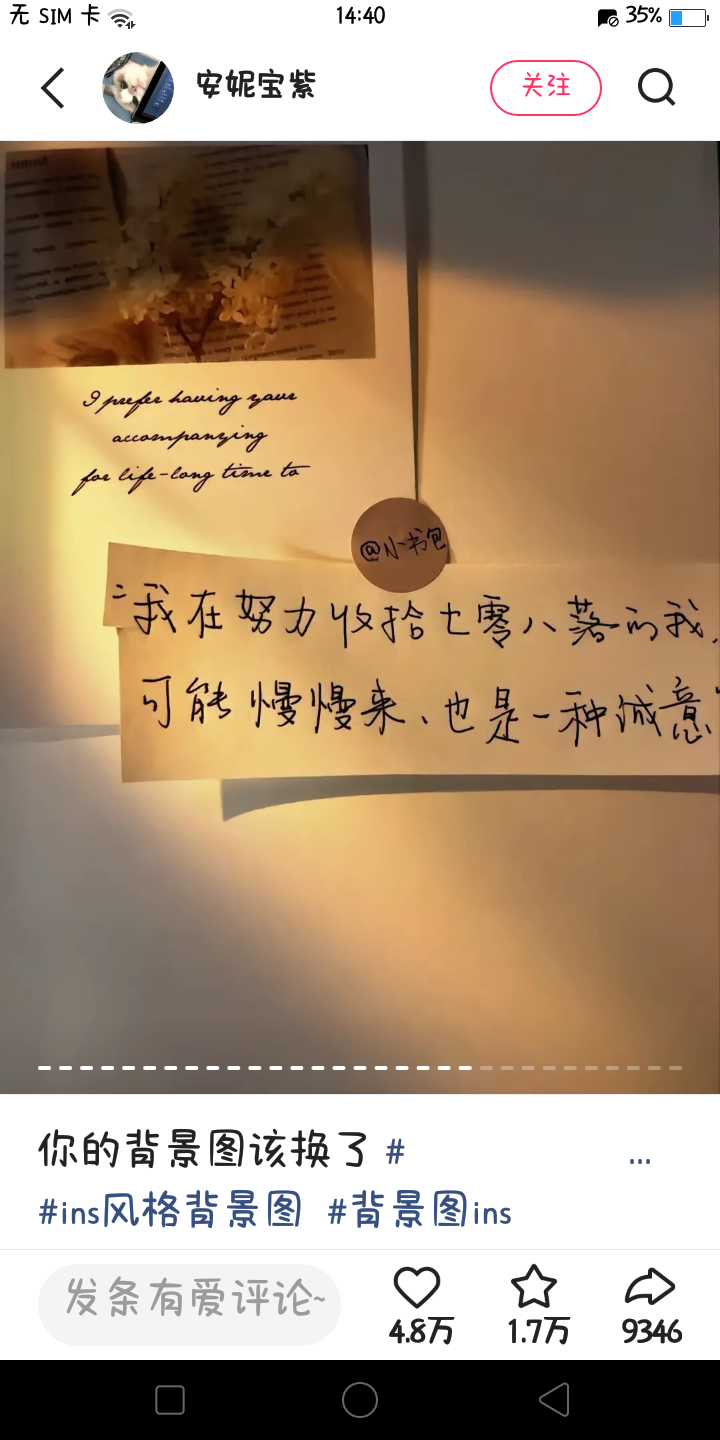 无 SIM 卡
14:40
35%
安妮宝紫
关注
I prefer having your
accompanying
for life-long time to
@小书包
“我在努力收拾七零八落的我,
可能慢慢来、也是一种诚意”
你的背景图该换了 # ...
#ins风格背景图 #背景图ins
发条有爱评论~
4.8万
1.7万
9346